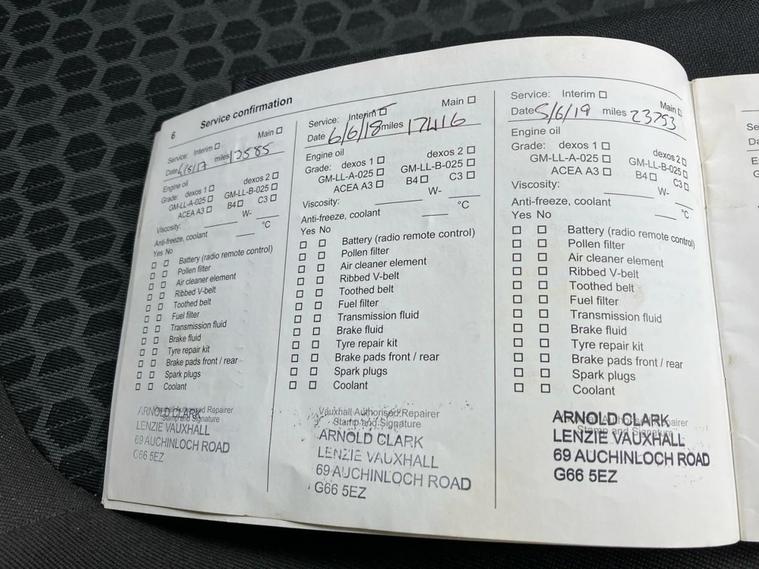 6 Service confirmation
Service: Interim ☐ Main ☐
Date miles 12585
Engine oil
Grade: dexos 1 ☐ dexos 2 ☐
GM-LL-A-025 ☐ GM-LL-B-025 ☐
ACEA A3 ☐ B4 ☐ C3 ☐
Viscosity: W-
Anti-freeze, coolant °C
Yes No
☐ ☐ Battery (radio remote control)
☐ ☐ Pollen filter
☐ ☐ Air cleaner element
☐ ☐ Ribbed V-belt
☐ ☐ Toothed belt
☐ ☐ Fuel filter
☐ ☐ Transmission fluid
☐ ☐ Brake fluid
☐ ☐ Tyre repair kit
☐ ☐ Brake pads front / rear
☐ ☐ Spark plugs
☐ ☐ Coolant
Vauxhall Authorised Repairer
Stamp and Signature
ARNOLD CLARK
LENZIE VAUXHALL
69 AUCHINLOCH ROAD
G66 5EZ
Service: Interim ☐ Main ☐
Date 6/6/18 miles 17416
Engine oil
Grade: dexos 1 ☐ dexos 2 ☐
GM-LL-A-025 ☐ GM-LL-B-025 ☐
ACEA A3 ☐ B4 ☐ C3 ☐
Viscosity: W-
Anti-freeze, coolant °C
Yes No
☐ ☐ Battery (radio remote control)
☐ ☐ Pollen filter
☐ ☐ Air cleaner element
☐ ☐ Ribbed V-belt
☐ ☐ Toothed belt
☐ ☐ Fuel filter
☐ ☐ Transmission fluid
☐ ☐ Brake fluid
☐ ☐ Tyre repair kit
☐ ☐ Brake pads front / rear
☐ ☐ Spark plugs
☐ ☐ Coolant
Vauxhall Authorised Repairer
Stamp and Signature
ARNOLD CLARK
LENZIE VAUXHALL
69 AUCHINLOCH ROAD
G66 5EZ
Service: Interim ☐ Main ☐
Date 5/6/19 miles 23753
Engine oil
Grade: dexos 1 ☐ dexos 2 ☐
GM-LL-A-025 ☐ GM-LL-B-025 ☐
ACEA A3 ☐ B4 ☐ C3 ☐
Viscosity: W-
Anti-freeze, coolant °C
Yes No
☐ ☐ Battery (radio remote control)
☐ ☐ Pollen filter
☐ ☐ Air cleaner element
☐ ☐ Ribbed V-belt
☐ ☐ Toothed belt
☐ ☐ Fuel filter
☐ ☐ Transmission fluid
☐ ☐ Brake fluid
☐ ☐ Tyre repair kit
☐ ☐ Brake pads front / rear
☐ ☐ Spark plugs
☐ ☐ Coolant
Stamp and
ARNOLD CLARK
LENZIE VAUXHALL
69 AUCHINLOCH ROAD
G66 5EZ